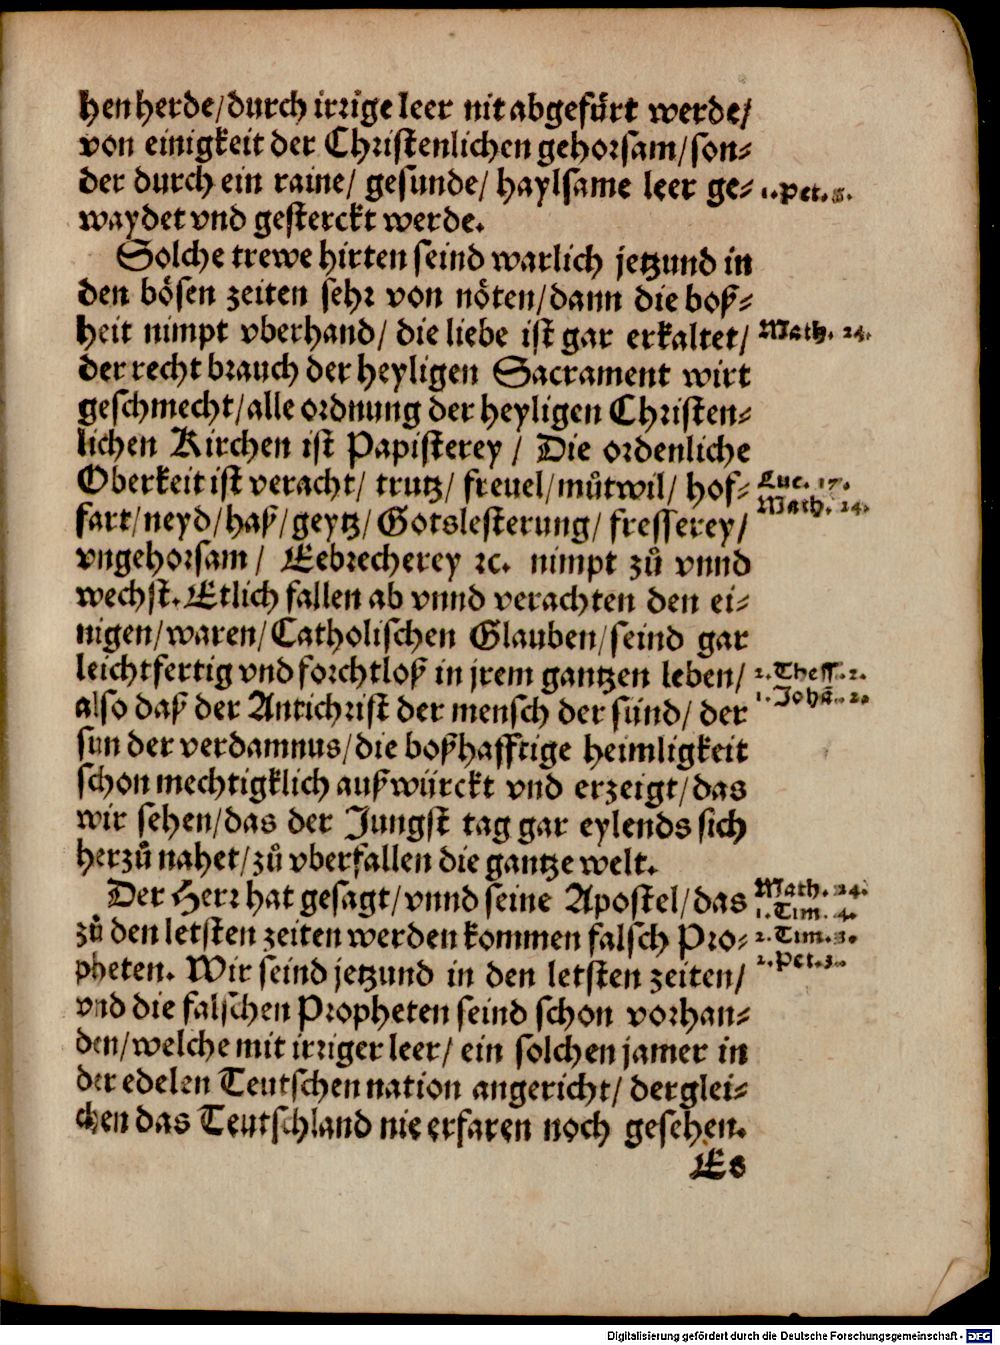 hen herde/durch irrige leer nit abgefůrt werde/
von einigkeit der Christenlichen gehorsam/son⸗
der durch ein raine/ gesunde/ haylsame leer ge⸗
1.Pet.5.
waydet vnd gesterckt werde.
Solche trewe hirten seind warlich jetzund in
den bösen zeiten sehr von nöten/dann die boß⸗
heit nimpt vberhand/ die liebe ist gar erkaltet/
Math. 24.
der recht brauch der heyligen Sacrament wirt
geschmecht/alle ordnung der heyligen Christen⸗
lichen Kirchen ist Papisterey / Die ordenliche
Oberkeit ist veracht/ trutz/ freuel/můtwil/ hof⸗
Luc. 17.
Math. 24.
fart/neyd/haß/geytz/Gotslesterung/ fresserey/
vngehorsam / Eebrecherey ꝛc. nimpt zů vnnd
wechst. Etlich fallen ab vnnd verachten den ei⸗
nigen/waren/Catholischen Glauben/seind gar
leichtfertig vnd forchtloß in jrem gantzen leben/
2.Thess.2.
1.Johā.2.
also daß der Antichrist der mensch der sünd/ der
sun der verdamnus/die boßhafftige heimligkeit
schon mechtigklich außwürckt vnd erzeigt/das
wir sehen/das der Jungst tag gar eylends sich
herzů nahet/zů vberfallen die gantze welt.
Der Herr hat gesagt/vnnd seine Apostel/das
Math. 24.
1.Tim. 4.
zů den letsten zeiten werden kommen falsch Pro⸗
2.Tim.3.
2.Pet.3.
pheten. Wir seind jetzund in den letsten zeiten/
vnd die falschen Propheten seind schon vorhan⸗
den/welche mit irriger leer/ ein solchen jamer in
der edelen Teutschen nation angericht/ derglei⸗
chen das Teutschland nie erfaren noch gesehen.
Es
Digitalisierung gefördert durch die Deutsche Forschungsgemeinschaft - DFG